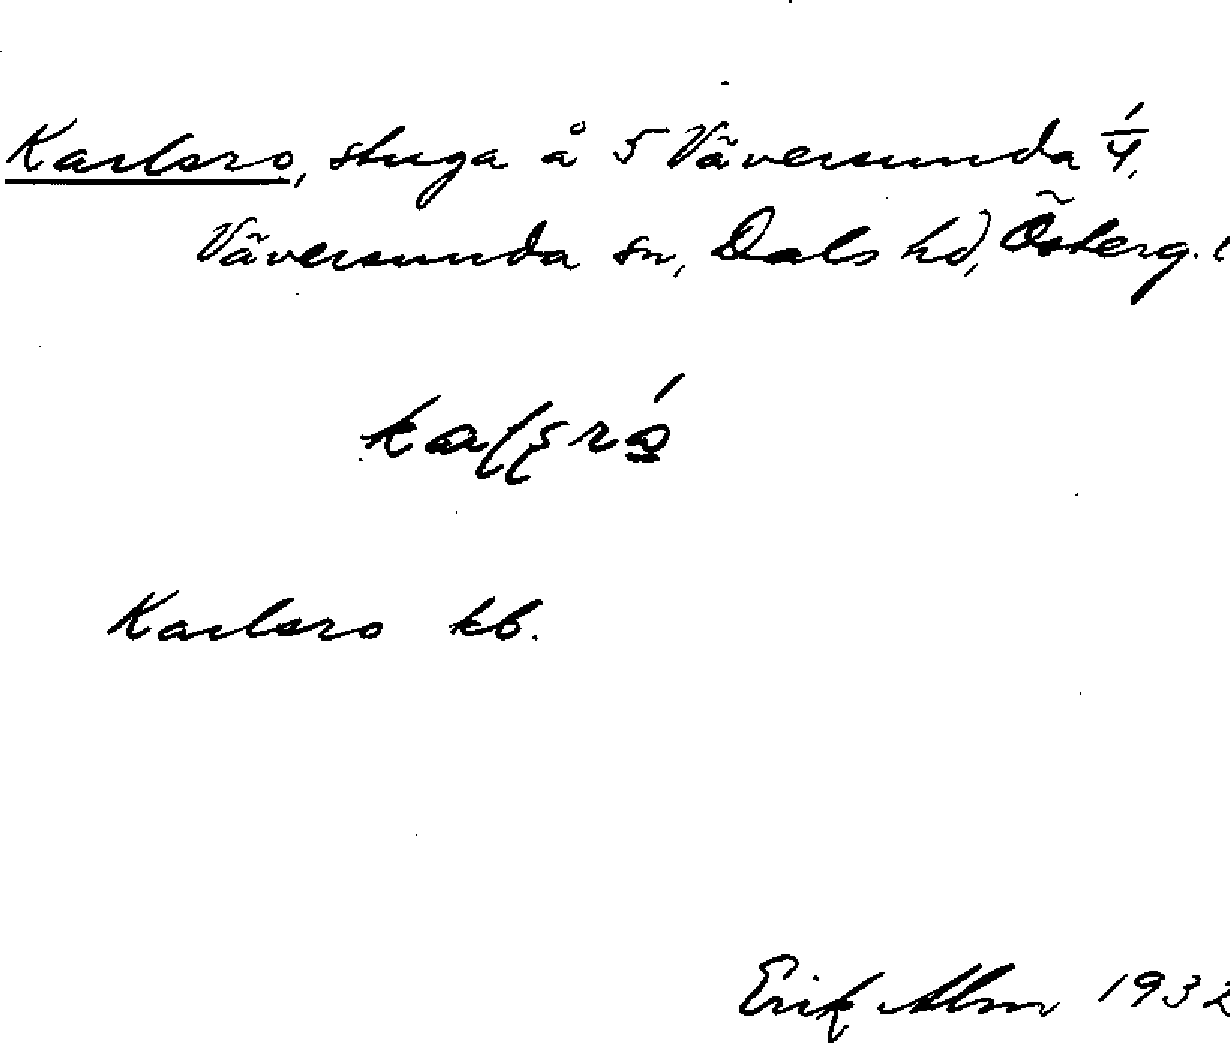 Karlsro, stuga å 5 Väversunda 1/4,
Väversunda sn, Dals hd, Österg. l
Karlsro kb.
Erik Alm 1932